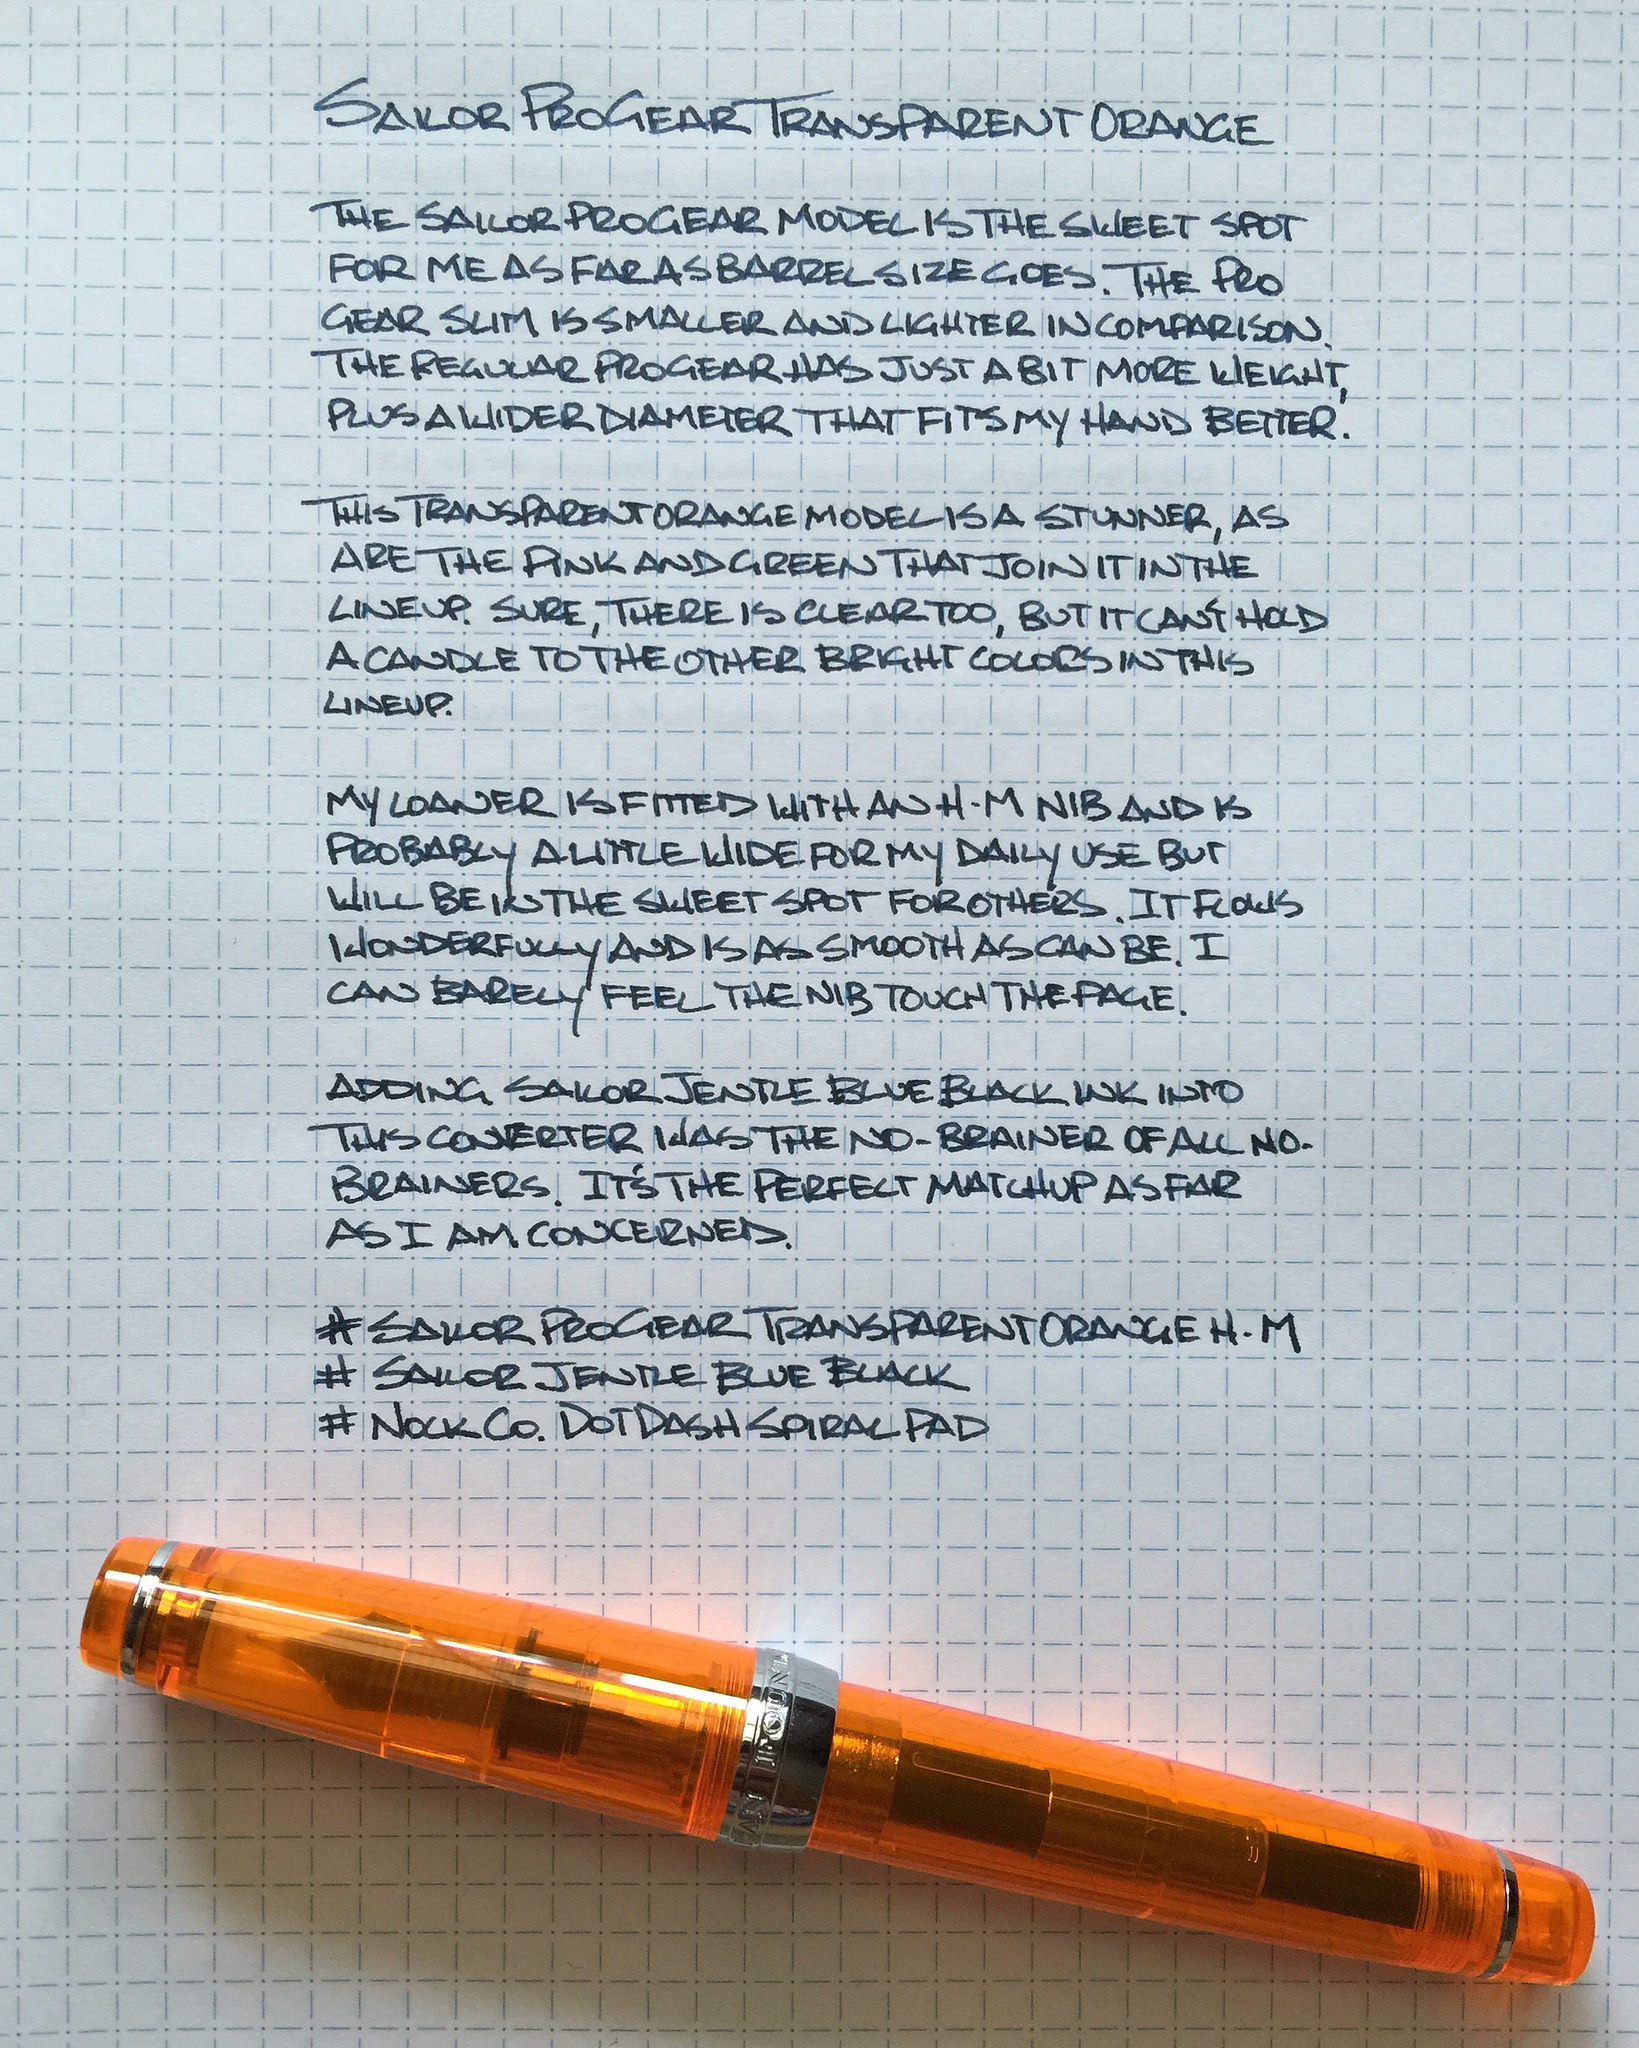 SAILOR PROGEAR TRANSPARENT ORANGE
THE SAILOR PROGEAR MODEL IS THE SWEET SPOT
FOR ME AS FAR AS BARREL SIZE GOES. THE PRO
GEAR SLIM IS SMALLER AND LIGHTER IN COMPARISON.
THE REGULAR PROGEAR HAS JUST A BIT MORE WEIGHT,
PLUS A WIDER DIAMETER THAT FITS MY HAND BETTER.
THIS TRANSPARENT ORANGE MODEL IS A STUNNER, AS
ARE THE PINK AND GREEN THAT JOIN IT IN THE
LINEUP. SURE, THERE IS CLEAR TOO, BUT IT CAN'T HOLD
A CANDLE TO THE OTHER BRIGHT COLORS IN THIS
LINEUP.
MY LOANER IS FITTED WITH AN H-M NIB AND IS
PROBABLY A LITTLE WIDE FOR MY DAILY USE BUT
WILL BE IN THE SWEET SPOT FOR OTHERS. IT FLOWS
WONDERFULLY AND IS AS SMOOTH AS CAN BE. I
CAN BARELY FEEL THE NIB TOUCH THE PAGE.
ADDING SAILOR JENTLE BLUE BLACK INK INTO
THIS CONVERTER WAS THE NO-BRAINER OF ALL NO-
BRAINERS. IT'S THE PERFECT MATCHUP AS FAR
AS I AM CONCERNED.
# SAILOR PROGEAR TRANSPARENT ORANGE H-M
# SAILOR JENTLE BLUE BLACK
# NOCK CO. DOTDASH SPIRAL PAD